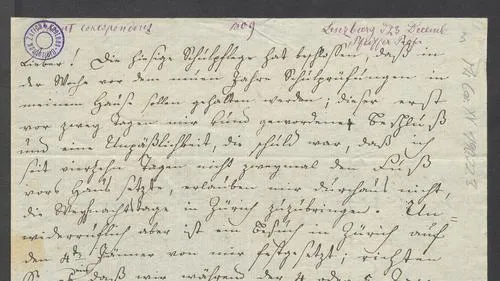 1809
Lenzburg d 23 Decemb
Pfeiffer
Lieber! Die hiesige Schulpflege hat beschlossen, daß in
der Woche vor dem neuen Jahre Schulprüfungen in
meinem Hause sollen gehalten werden; dieser erst
vor zwey Tagen mir kund gewordene Beschluß
und eine Unpäßlichkeit, die schuld war, daß ich
seit vierzehn Tagen nicht zweymal den Fuß
vors Haus setzte, erlauben mir durchaus nicht,
die Weyhnachtstage in Zürich zuzubringen. Un=
widerruflich aber ist ein Besuch in Zürich auf
den 4ten Jänner von mir festgesetzt; richten
daß wir während der 4 oder 5